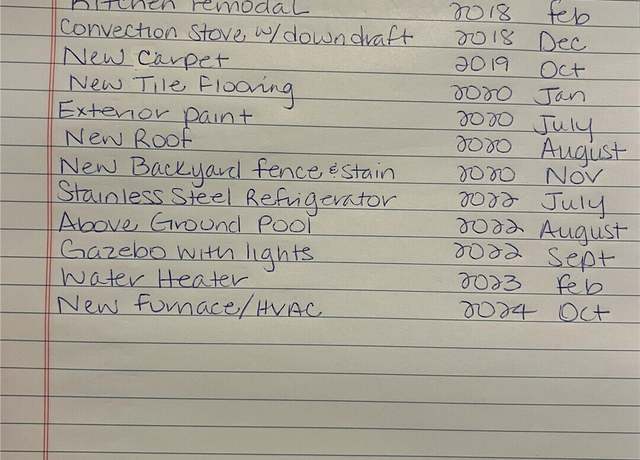 Kitchen remodal 2018 Feb
Convection Stove w/downdraft 2018 Dec
New Carpet 2019 Oct
New Tile Flooring 2020 Jan
Exterior paint 2020 July
New Roof 2020 August
New Backyard fence & stain 2020 Nov
Stainless Steel Refrigerator 2022 July
Above Ground Pool 2022 August
Gazebo with lights 2022 Sept
Water Heater 2023 Feb
New Furnace/HVAC 2024 Oct